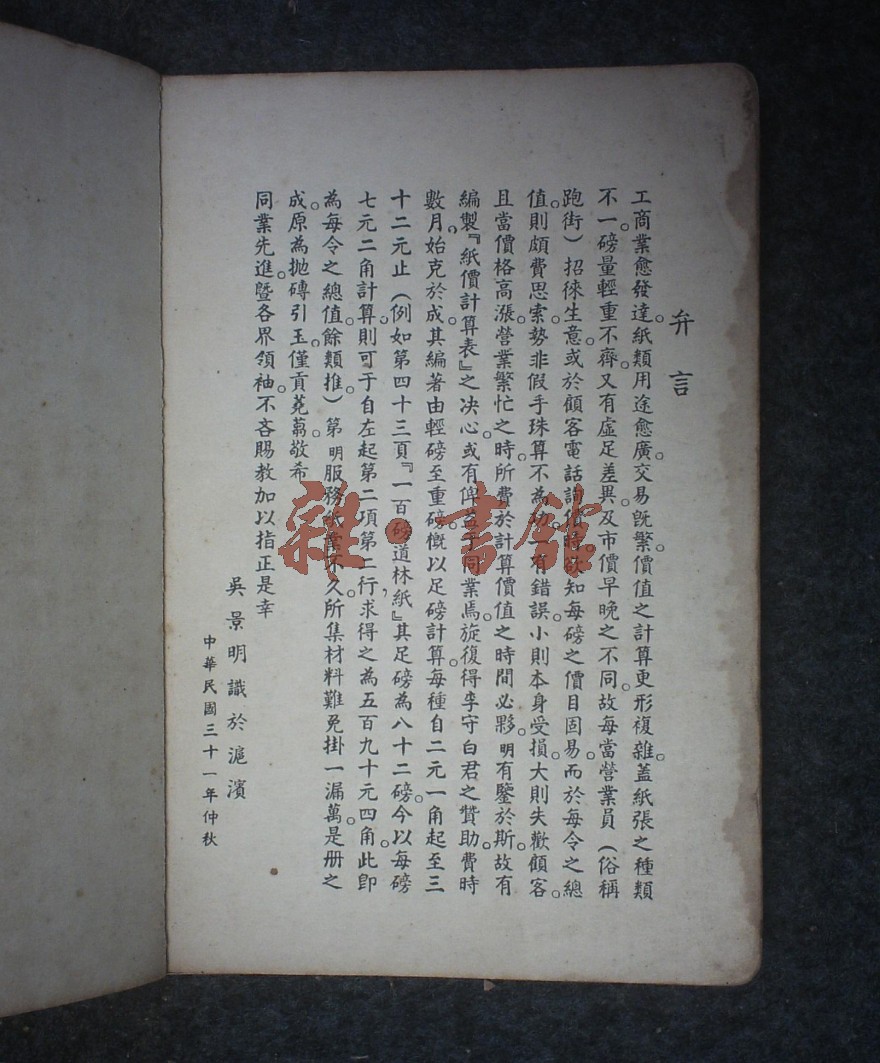 弁言
工商業愈發達。紙類用途愈廣。交易既繁。價值之計算更形複雜。蓋紙張之種類
不一。磅量輕重不齊。又有虛足差異。及市價早晚之不同。故每當營業員（俗稱
跑街）招徠生意。或於顧客電話詢價時。欲知每磅之價目固易。而於每令之總
值。則頗費思索。勢非假手珠算不為功。有錯誤。小則本身受損。大則失歡顧客。
且當價格高漲。營業繁忙之時。所費於計算價值之時間必夥。明有鑒於斯。故有
編製『紙價計算表』之決心。或有俾益于同業焉。旋復得李守白君之贊助。費時
數月。始克於成。其編著由輕磅至重磅。概以足磅計算。每種自二元一角起至三
十二元止（例如第四十三頁『一百磅道林紙』其足磅為八十二磅。今以每磅
七元二角計算。則可于自左起第二項第二行。求得之為五百九十元四角。此即
為每令之總值。餘類推）第明服務不久。所集材料難免掛一漏萬。是册之
成。原為拋磚引玉。僅貢蒭蕘。敬希
同業先進。暨各界領袖。不吝賜教。加以指正是幸
吳景明識於滬濱
中華民國三十一年仲秋
雜·書館